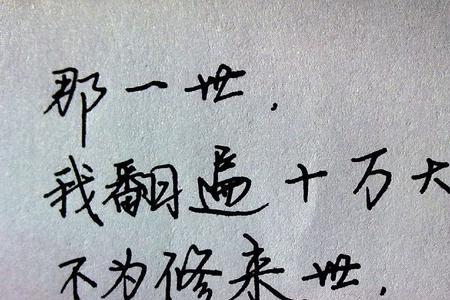 那一世，
我翻遍十万大
不为修来世，